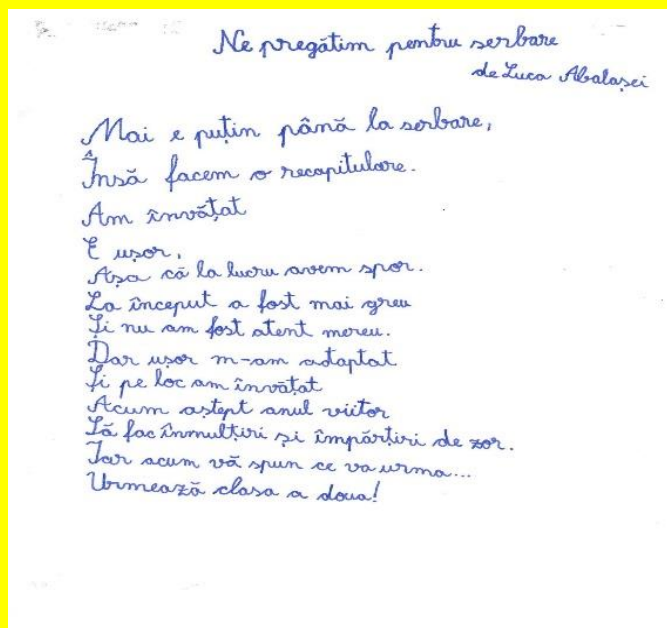 Ne pregătim pentru serbare
de Luca Abalașei
Mai e puțin până la serbare,
Însă facem o recapitulare.
Am învățat
E ușor,
Așa că la lucru avem spor.
La început a fost mai greu
Și nu am fost atent mereu.
Dar ușor m-am adaptat
Și pe loc am învățat
Acum aștept anul viitor
Să fac înmulțiri și împărțiri de zor.
Iar acum vă spun ce va urma...
Urmează clasa a doua!